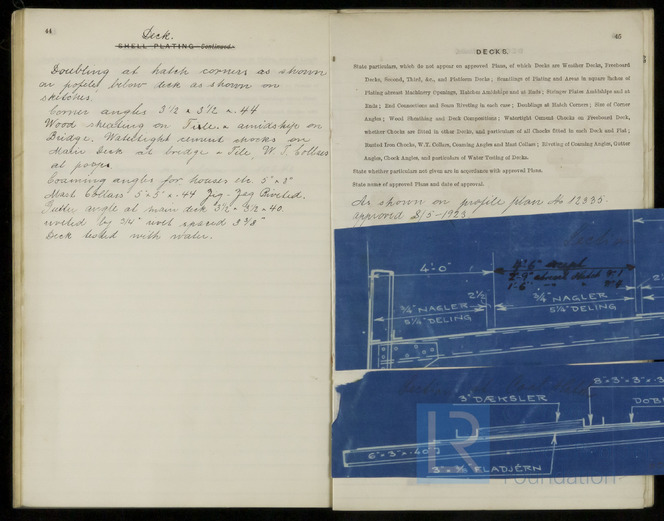 44
Deck.
SHELL PLATING-Continued.
Doubling at hatch corners as shown
on profile below deck as shown on
sketches.
Corner angles 3 1/2 × 3 1/2 × .44
Wood sheating on amidship on
Bridge. Watertight cement chocks on
Main Deck at bridge W. T. Collars
at poop.
Coaming angles for houses etc 5" × 3"
Mast Collars 5" × 3" × .44 Zig-Zag Riveted.
Gutter angle at main deck 3 1/2 × 3 1/2 × 40.
riveted by 3/4" rivet spaced 3 3/8"
Deck tested with water.
45
DECKS.
State particulars, which do not appear on approved Plans, of which Decks are Weather Decks, Freeboard
Decks, Second, Third, &c., and Platform Decks; Scantlings of Plating and Areas in square inches of
Plating abreast Machinery Openings, Hatches Amidships and at Ends; Stringer Plates Amidships and at
Ends; End Connections and Seam Riveting in each case; Doublings at Hatch Corners; Size of Corner
Angles; Wood Sheathing and Deck Compositions; Watertight Cement Chocks on Freeboard Deck,
whether Chocks are fitted in other Decks, and particulars of all Chocks fitted in each Deck and Flat;
Riveted Iron Chocks, W.T. Collars, Coaming Angles and Mast Collars; Riveting of Coaming Angles, Gutter
Angles, Chock Angles, and particulars of Water Testing of Decks.
State whether particulars not given are in accordance with approved Plans.
State name of approved Plans and date of approval.
As shown on profile plan No 12335.
approved 2/5-1923
4'-0"
4'-6"
2'-9" abreast Hatch
1'-6"
2 1/2
2'
3/4" NAGLER
5 1/4" DELING
3/4" NAGLER
5 1/4" DELING
3" DÆKSLER
8"·3"·3"·3
DOB
6"·3"·.40
FLADJERN
LR
Foundation